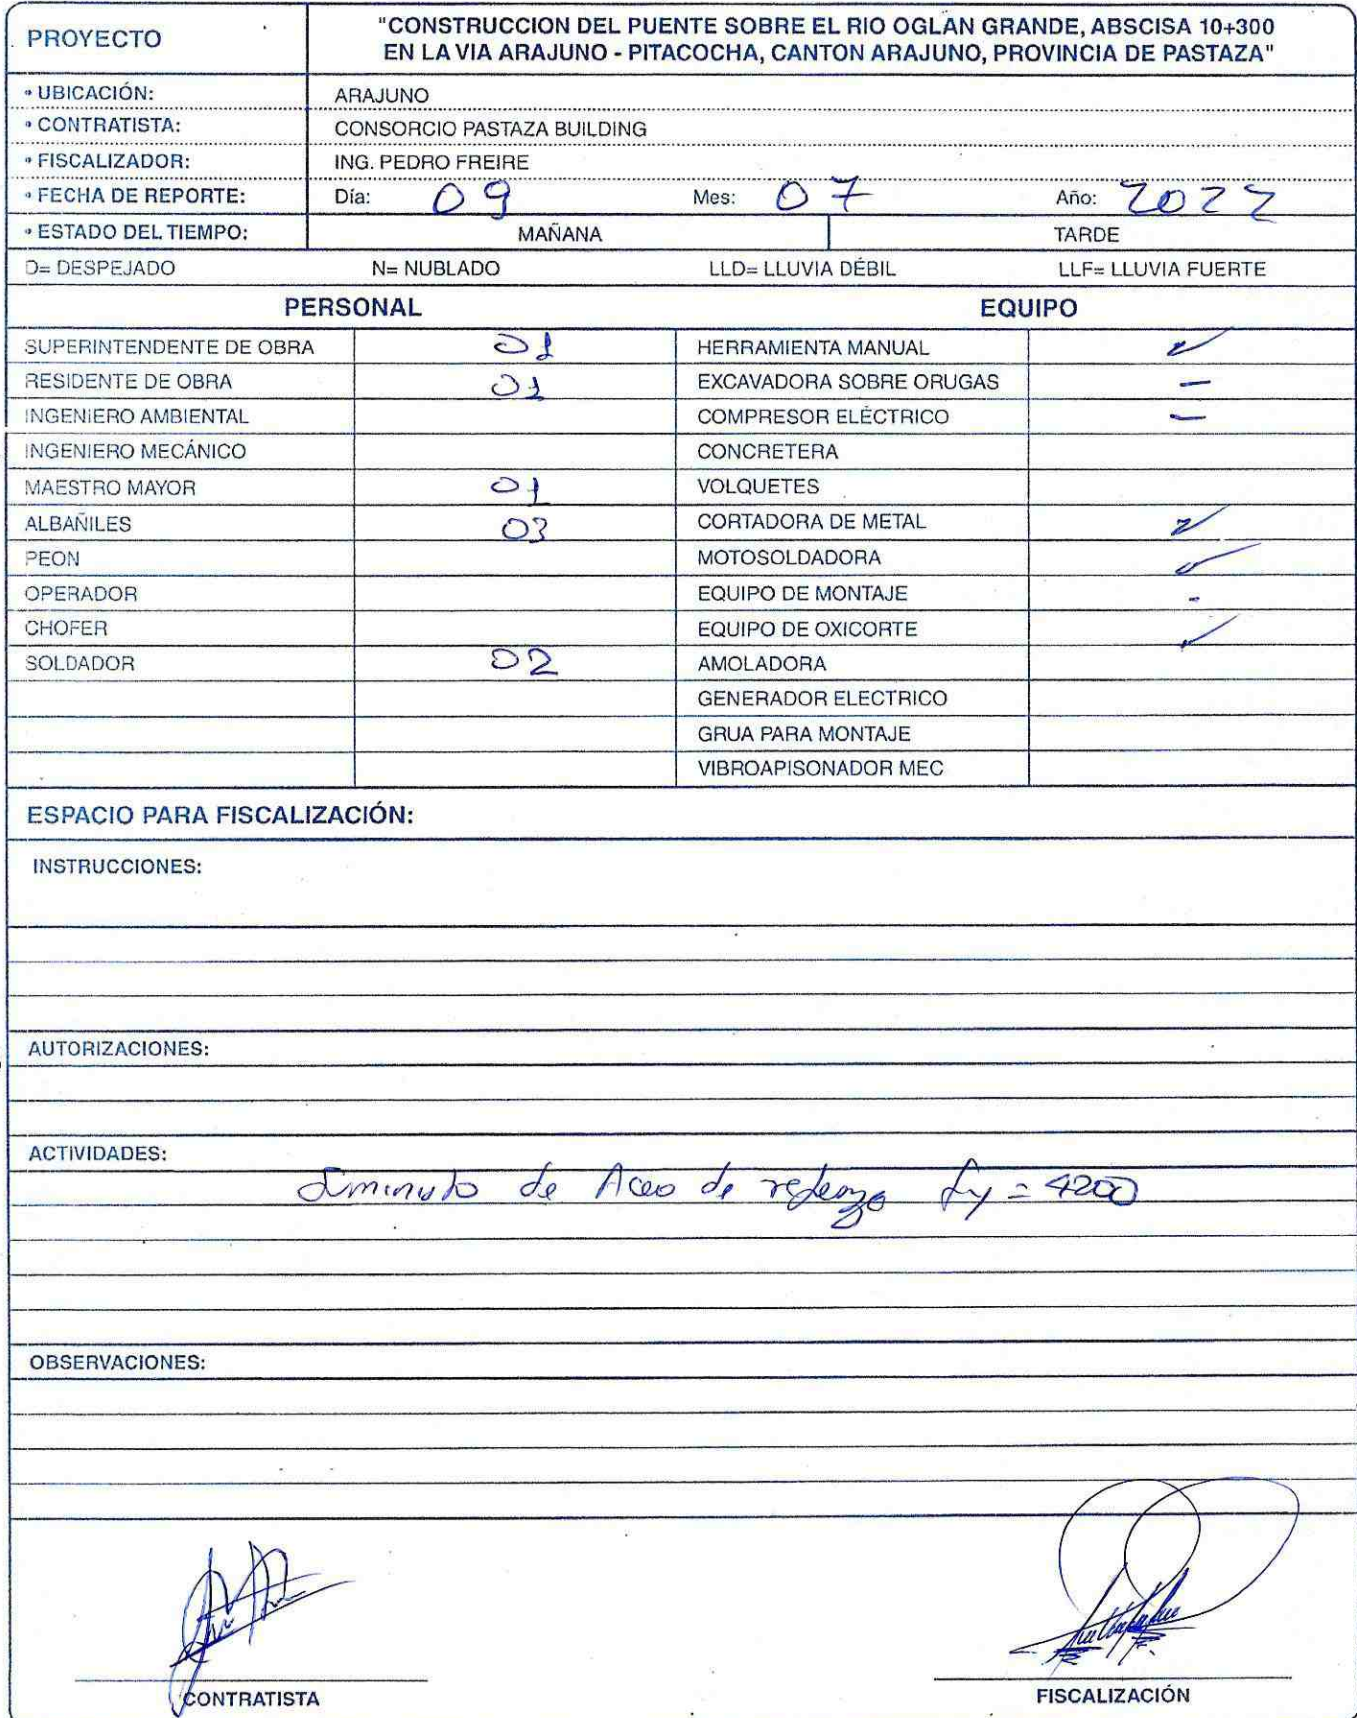 PROYECTO
"CONSTRUCCION DEL PUENTE SOBRE EL RIO OGLAN GRANDE, ABSCISA 10+300
EN LA VIA ARAJUNO - PITACOCHA, CANTON ARAJUNO, PROVINCIA DE PASTAZA"
• UBICACIÓN: ARAJUNO
• CONTRATISTA: CONSORCIO PASTAZA BUILDING
• FISCALIZADOR: ING. PEDRO FREIRE
• FECHA DE REPORTE: Día: 09 Mes: 07 Año: 2022
• ESTADO DEL TIEMPO: MAÑANA TARDE
D= DESPEJADO N= NUBLADO LLD= LLUVIA DÉBIL LLF= LLUVIA FUERTE
PERSONAL EQUIPO
SUPERINTENDENTE DE OBRA 01 HERRAMIENTA MANUAL ✓
RESIDENTE DE OBRA 01 EXCAVADORA SOBRE ORUGAS –
INGENIERO AMBIENTAL COMPRESOR ELÉCTRICO –
INGENIERO MECÁNICO CONCRETERA
MAESTRO MAYOR 01 VOLQUETES
ALBAÑILES 03 CORTADORA DE METAL ✓
PEON MOTOSOLDADORA ✓
OPERADOR EQUIPO DE MONTAJE -
CHOFER EQUIPO DE OXICORTE ✓
SOLDADOR 02 AMOLADORA
GENERADOR ELECTRICO
GRUA PARA MONTAJE
VIBROAPISONADOR MEC
ESPACIO PARA FISCALIZACIÓN:
INSTRUCCIONES:
AUTORIZACIONES:
ACTIVIDADES:
de Acero de refuerzo fy = 4200
OBSERVACIONES:
CONTRATISTA FISCALIZACIÓN